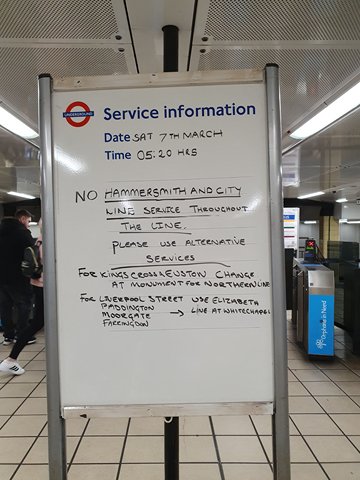 UNDERGROUND
Service information
Date SAT 7TH MARCH
Time 05:20 HRS
NO HAMMERSMITH AND CITY
LINE SERVICE THROUGHOUT
THE LINE.
PLEASE USE ALTERNATIVE
SERVICES
FOR KINGS CROSS & EUSTON CHANGE
AT MONUMENT FOR NORTHERN LINE
FOR LIVERPOOL STREET USE ELIZABETH
PADDINGTON
MOORGATE → LINE AT WHITECHAPEL
FARRINGDON
Orphans in Need